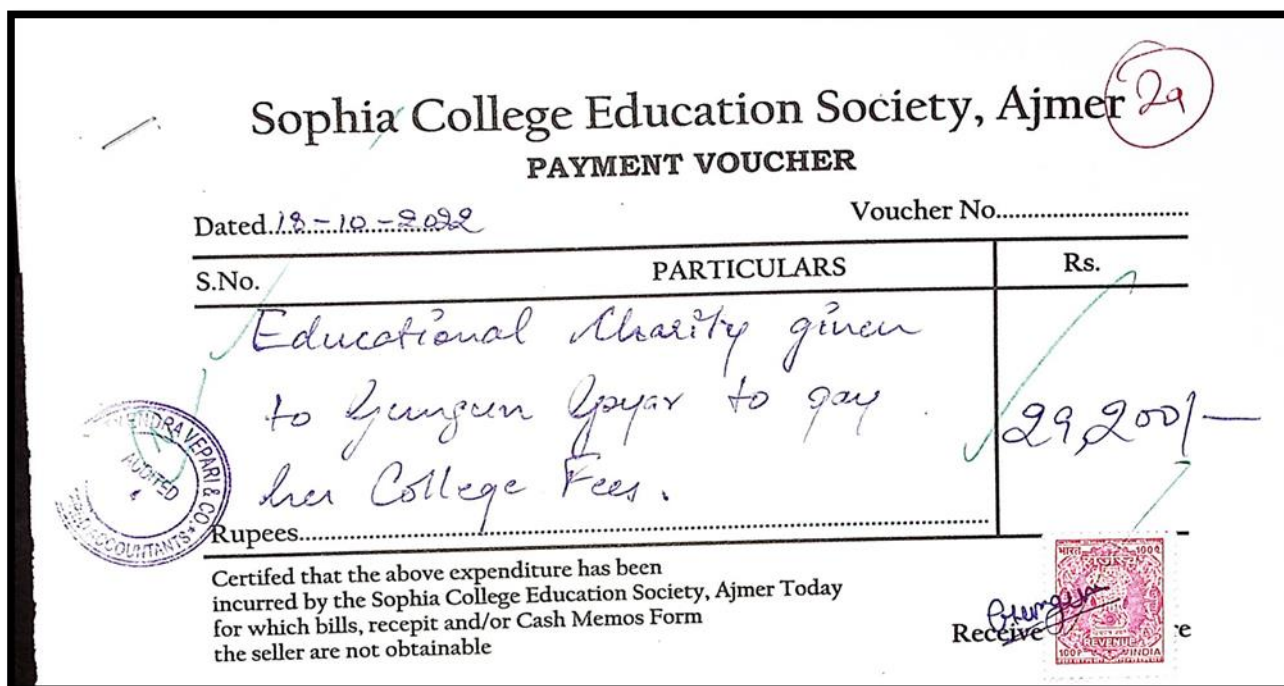 Sophia College Education Society, Ajmer
29
PAYMENT VOUCHER
Dated 18-10-2022 Voucher No.
S.No. PARTICULARS Rs.
Educational Charity given
to to pay
her College Fees.
29,200/-
Rupees
ENDRA VEPARI & CO.
AUDITED
ACCOUNTANTS
Certifed that the above expenditure has been
incurred by the Sophia College Education Society, Ajmer Today
for which bills, recepit and/or Cash Memos Form
the seller are not obtainable
भारत 100
REVENUE
100 INDIA
Receive re